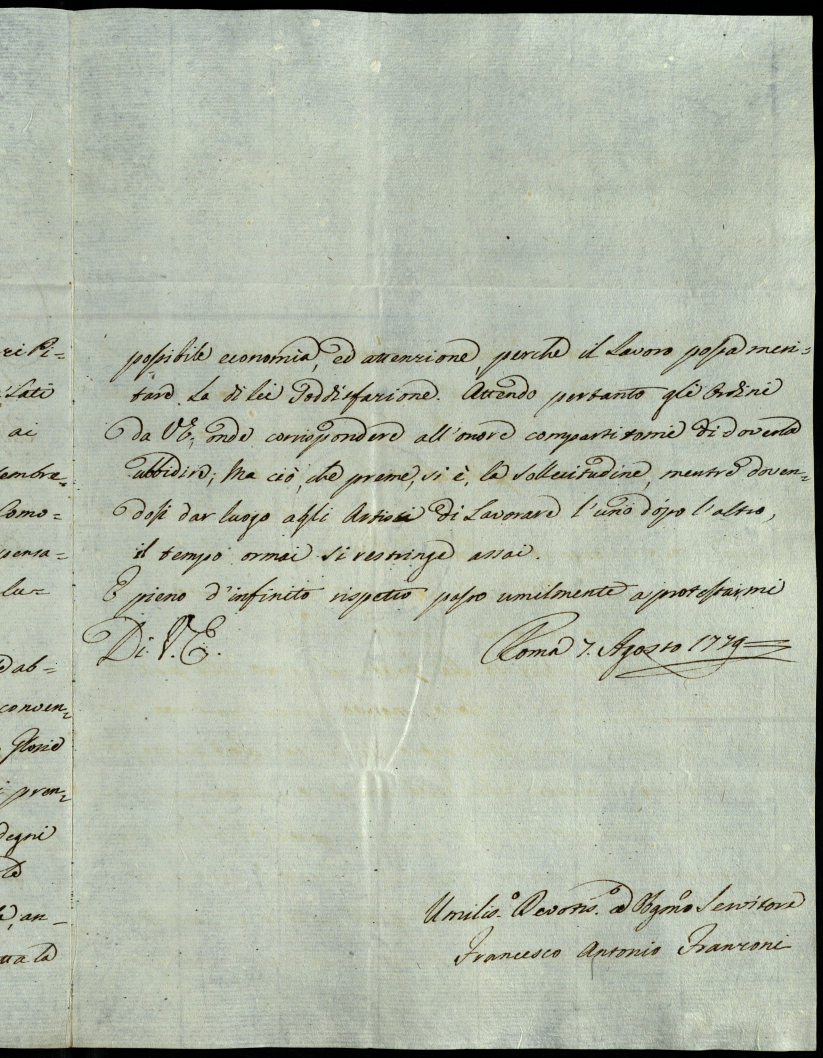 ri Pi=
Lati
ai
tembre=
Como=
pensa=
lu=
ab=
conven=
Glorie
pren=
degni
le
an=
ta la
possibile economia, ed attenzione perche il Lavoro possa meri=
tare la di Lei Soddisfazione. Attendo pertanto gli Ordini
da V.E., onde corrispondere all'onore compartitomi di doverla
ubbidire; Ma ciò, che preme, si è, la sollecitudine, mentre doven=
dosi dar luogo agli Artisti di Lavorare l'uno dopo l'altro,
il tempo ormai si restringe assai.
E pieno d'infinito rispetto passo umilmente a protestarmi
Di V.E.
Roma 7. Agosto 1779
Umilis.º Devotis.º ed Obgmo Servitore
Francesco Antonio Franzoni